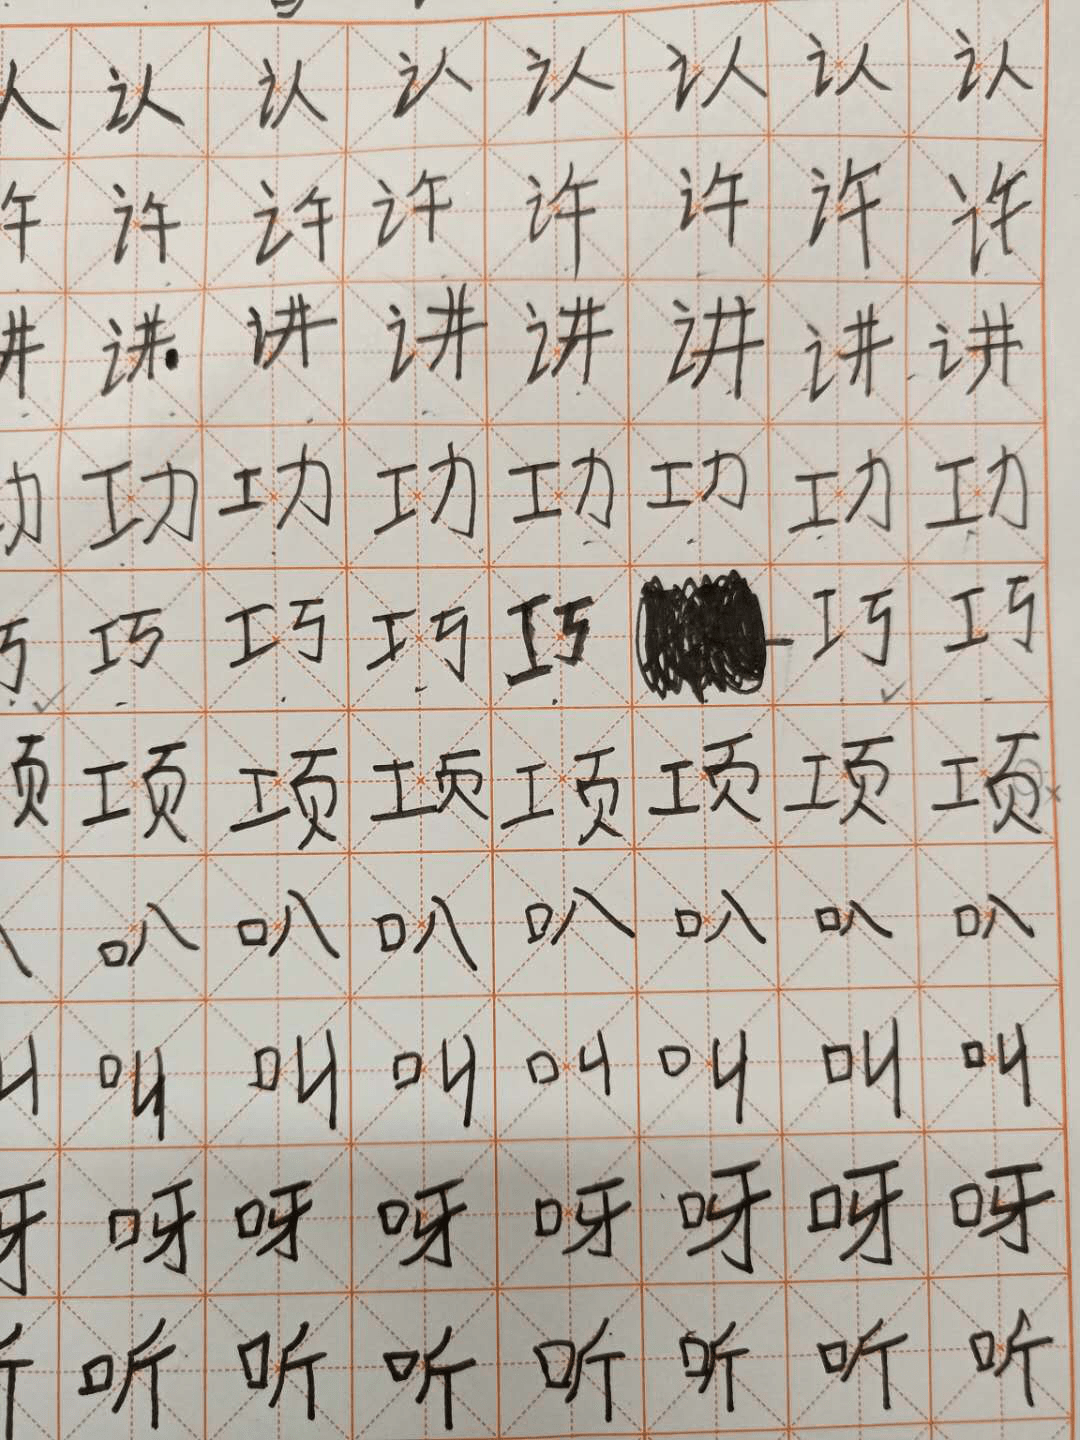 人认认认认认认认
午许许许许许许许
井讲讲讲讲讲讲讲
功功功功功功功功
巧巧巧巧巧巧巧
项项项项项项项
叭叭叭叭叭叭叭
叫叫叫叫叫叫叫
牙呀呀呀呀呀呀呀
听听听听听听听